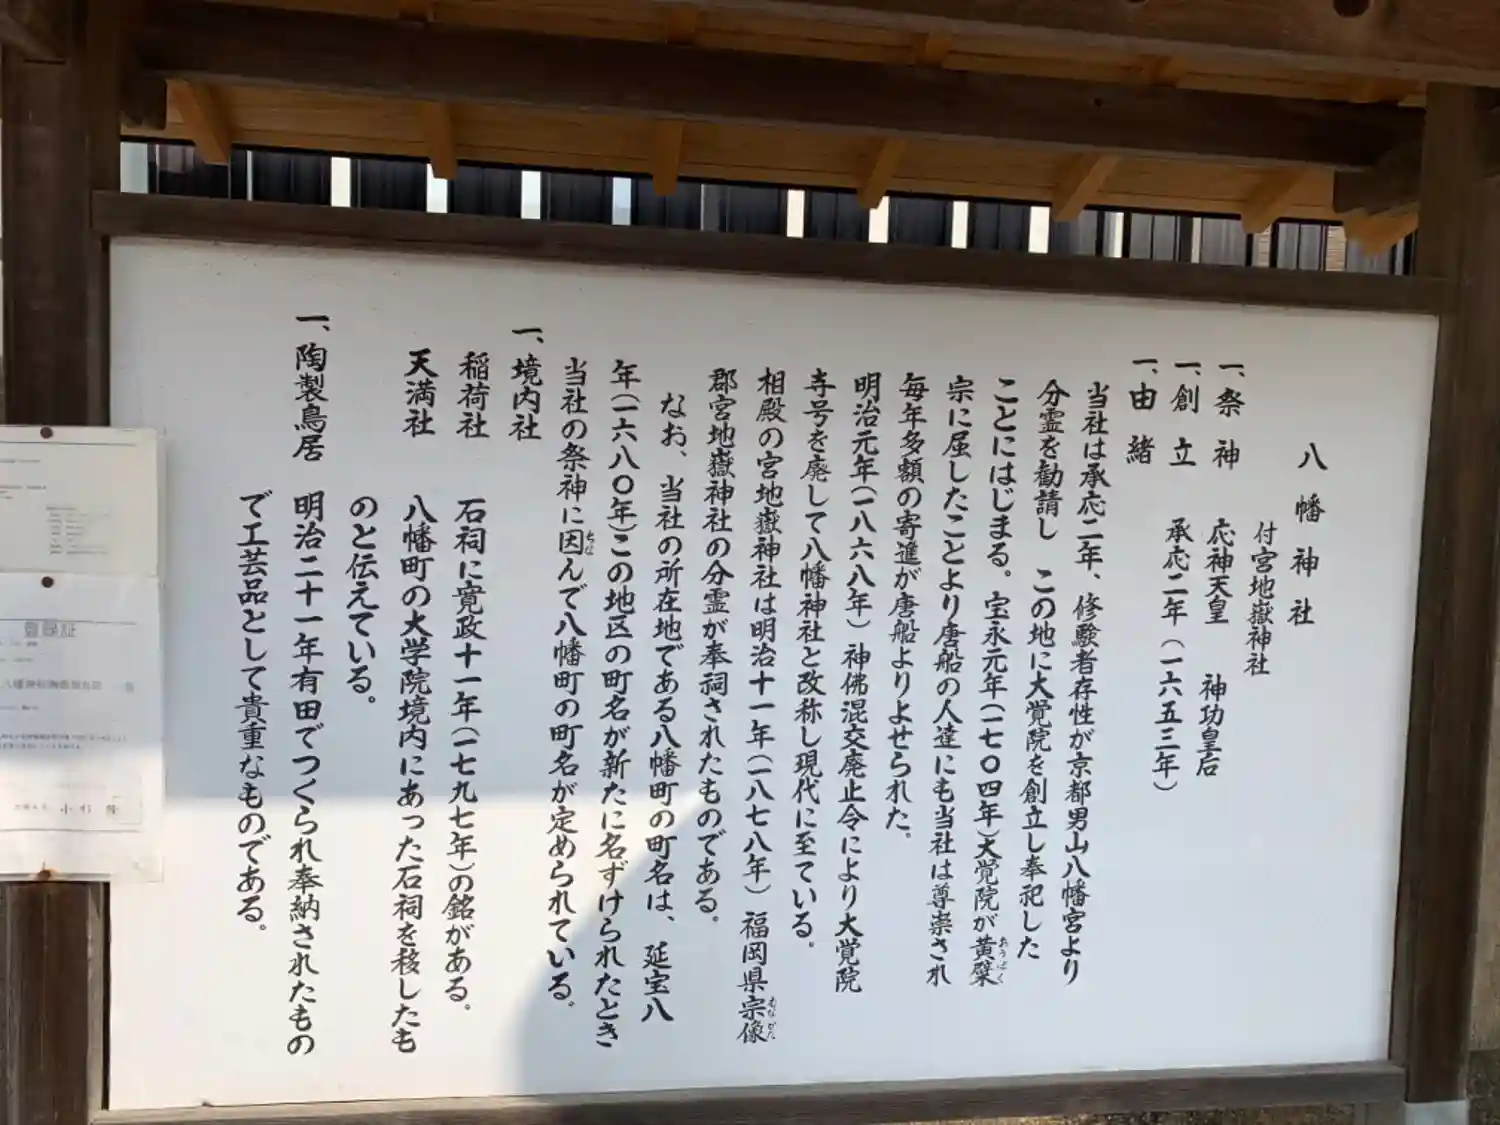 八幡神社
付宮地嶽神社
一、祭神 応神天皇 神功皇后
一、創立 承応二年(一六五三年)
一、由緒
当社は承応二年、修験者存性が京都男山八幡宮より
分霊を勧請し この地に大覚院を創立し奉祀した
ことにはじまる。宝永元年(一七〇四年)大覚院が黄檗
おうばく
宗に属したことより唐船の人達にも当社は尊崇され
毎年多額の寄進が唐船よりよせられた。
明治元年(一八六八年)神佛混交廃止令により大覚院
寺号を廃して八幡神社と改称し現代に至ている。
相殿の宮地嶽神社は明治十一年(一八七八年)福岡県宗像
むなかた
郡宮地嶽神社の分霊が奉祠されたものである。
なお、当社の所在地である八幡町の町名は、延宝八
年(一六八〇年)この地区の町名が新たに名ずけられたとき
当社の祭神に因んで八幡町の町名が定められている。
ちな
一、境内社
稲荷社 石祠に寛政十一年(一七九七年)の銘がある。
天満社 八幡町の大学院境内にあった石祠を移したも
のと伝えている。
一、陶製鳥居 明治二十一年有田でつくられ奉納されたもの
で工芸品として貴重なものである。
登録証